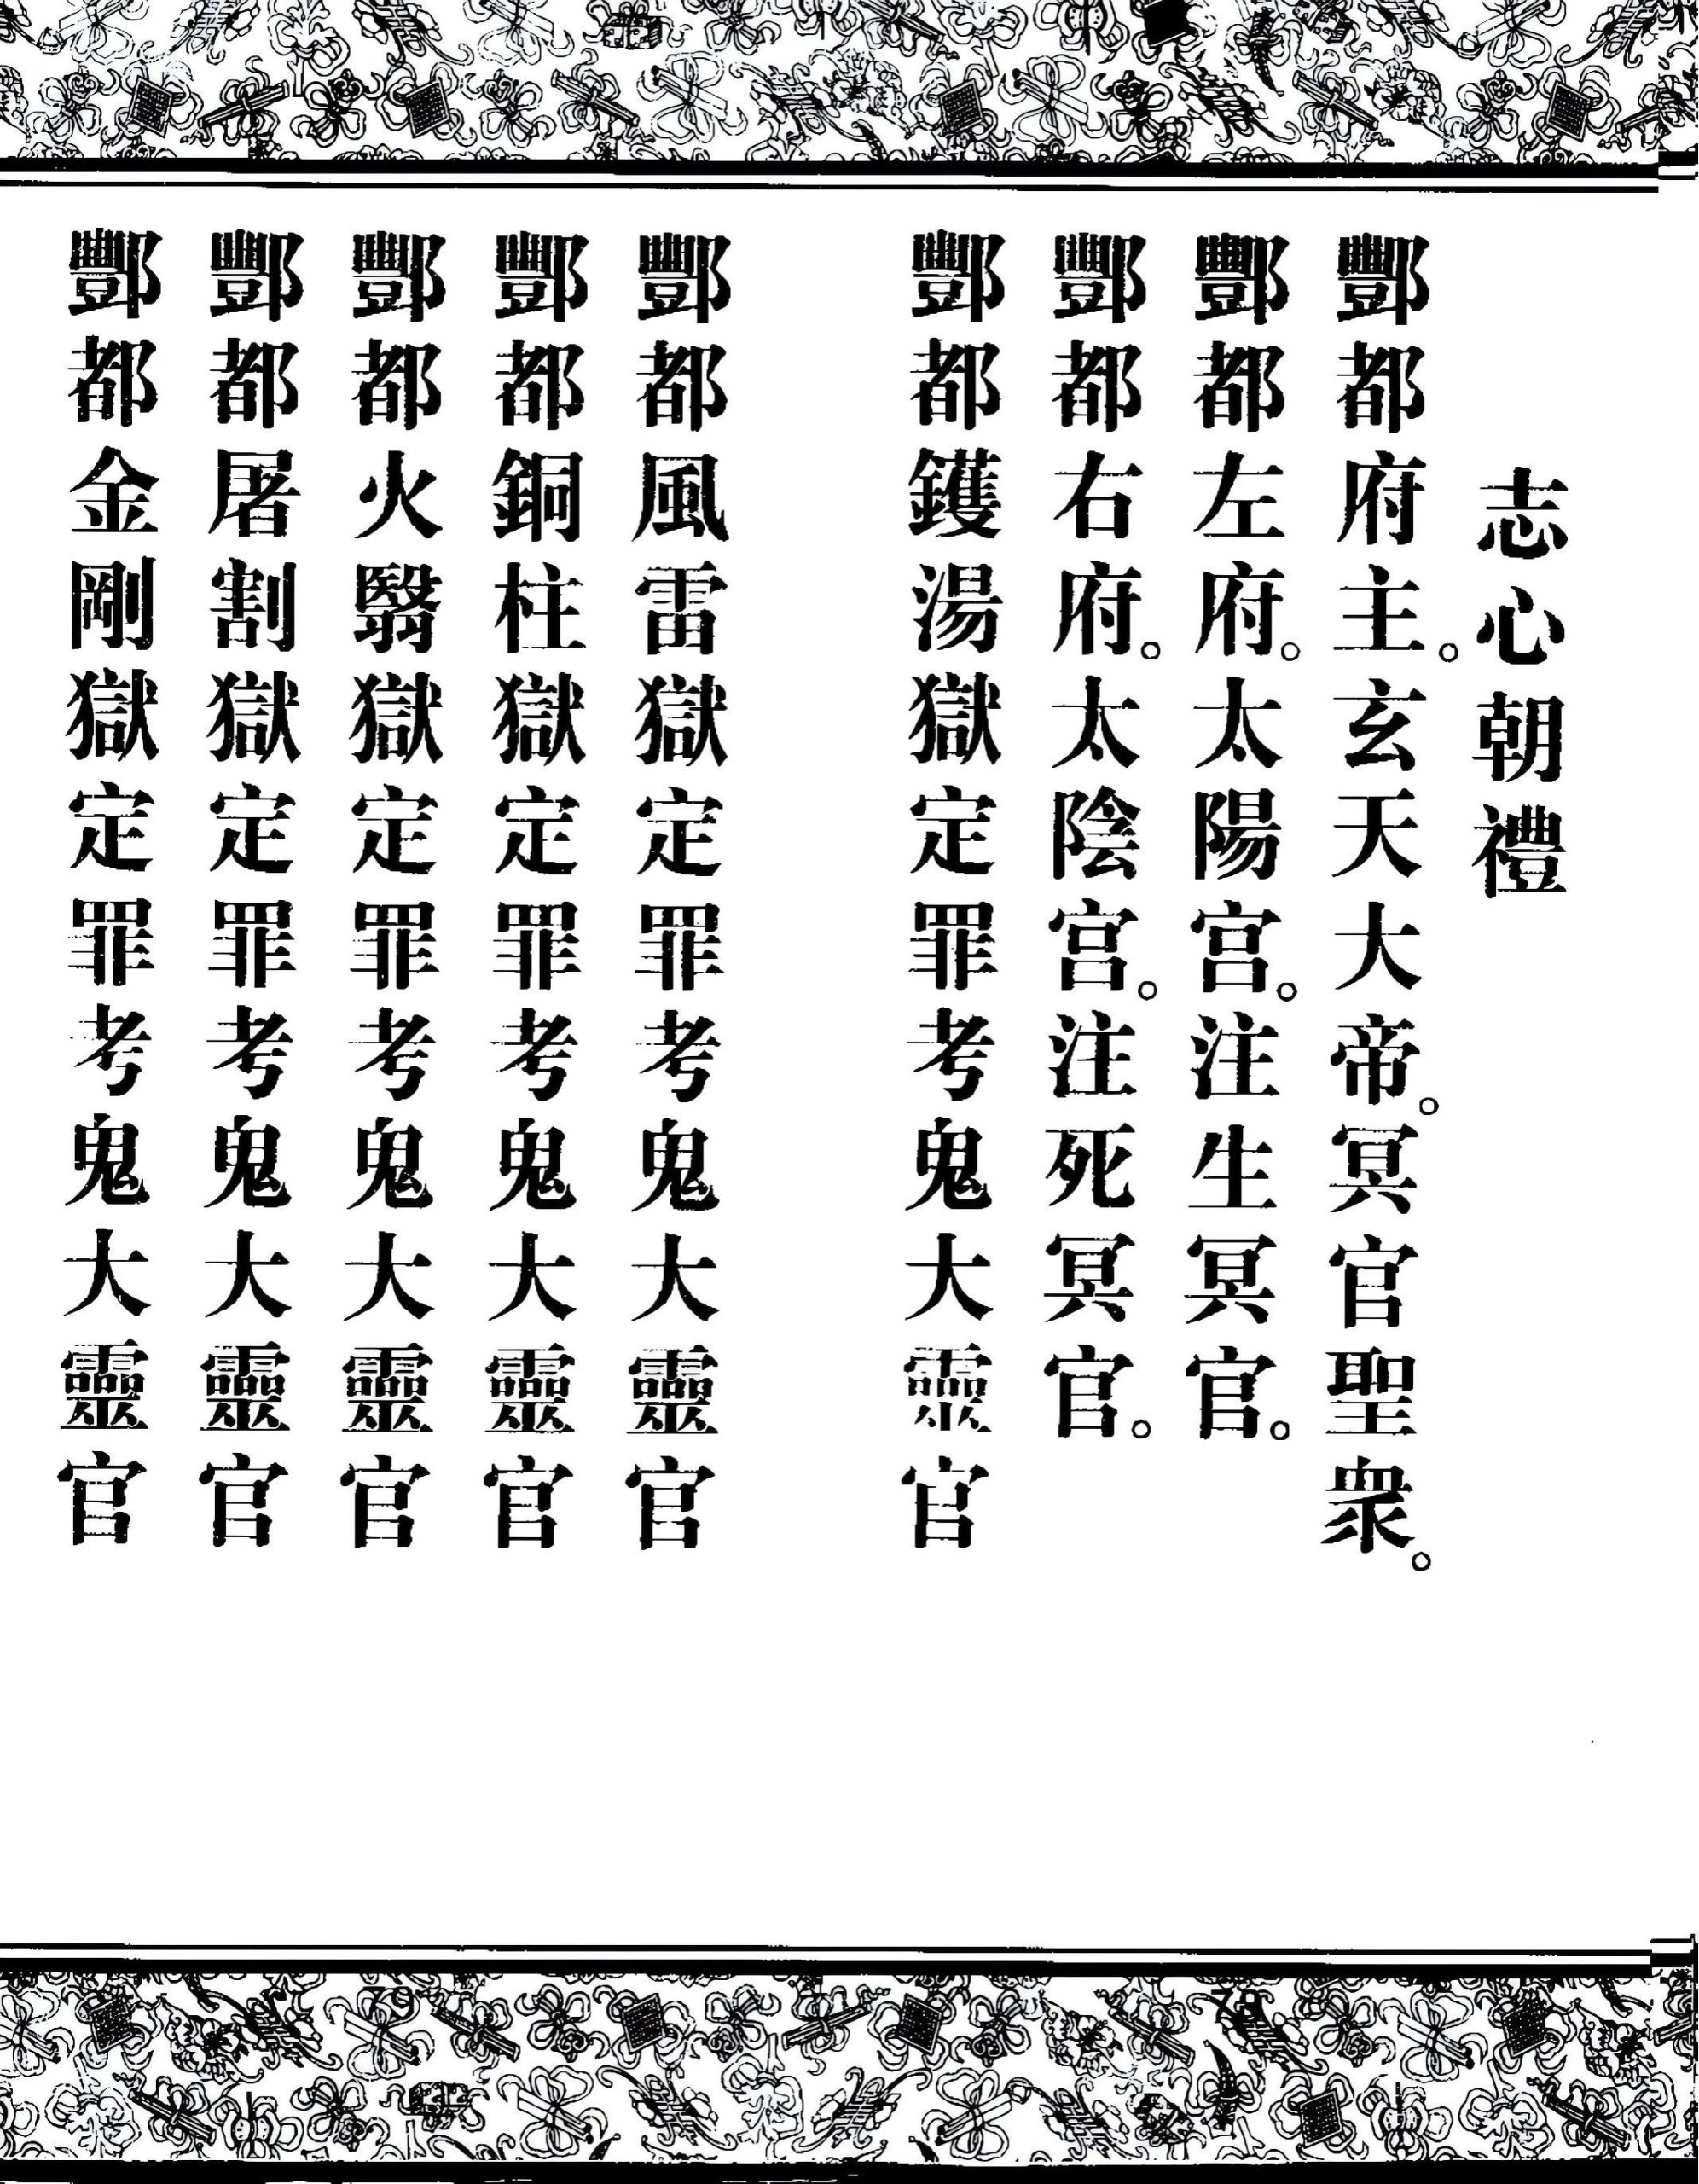 志心朝禮
酆都府主。玄天大帝。冥官聖衆。
酆都左府。太陽宮。注生冥官。
酆都右府。太陰宮。注死冥官。
酆都鑊湯獄定罪考鬼大靈官
酆都風雷獄定罪考鬼大靈官
酆都銅柱獄定罪考鬼大靈官
酆都火翳獄定罪考鬼大靈官
酆都屠割獄定罪考鬼大靈官
酆都金剛獄定罪考鬼大靈官
79